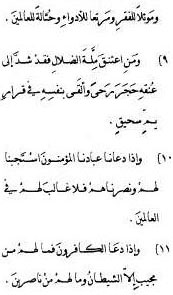 وموئلاً للفقر ومرتعا للأدواء وحثالة للعالمين .
(٩) ومن اعتنق ملّة الضلال فقد شدّ إلى
عنقه حجر رحىً وألقى بنفسه في قرار
يمّ سحيق .
(١٠) وإذا دعانا عبادنا المؤمنون استجبنا
لهم ونصرناهم فلا غالب لهم في
العالمين .
(١١) وإذا دعا الكافرون فما لهم من
مجيب إلاّ الشيطان وما لهم من ناصرين .